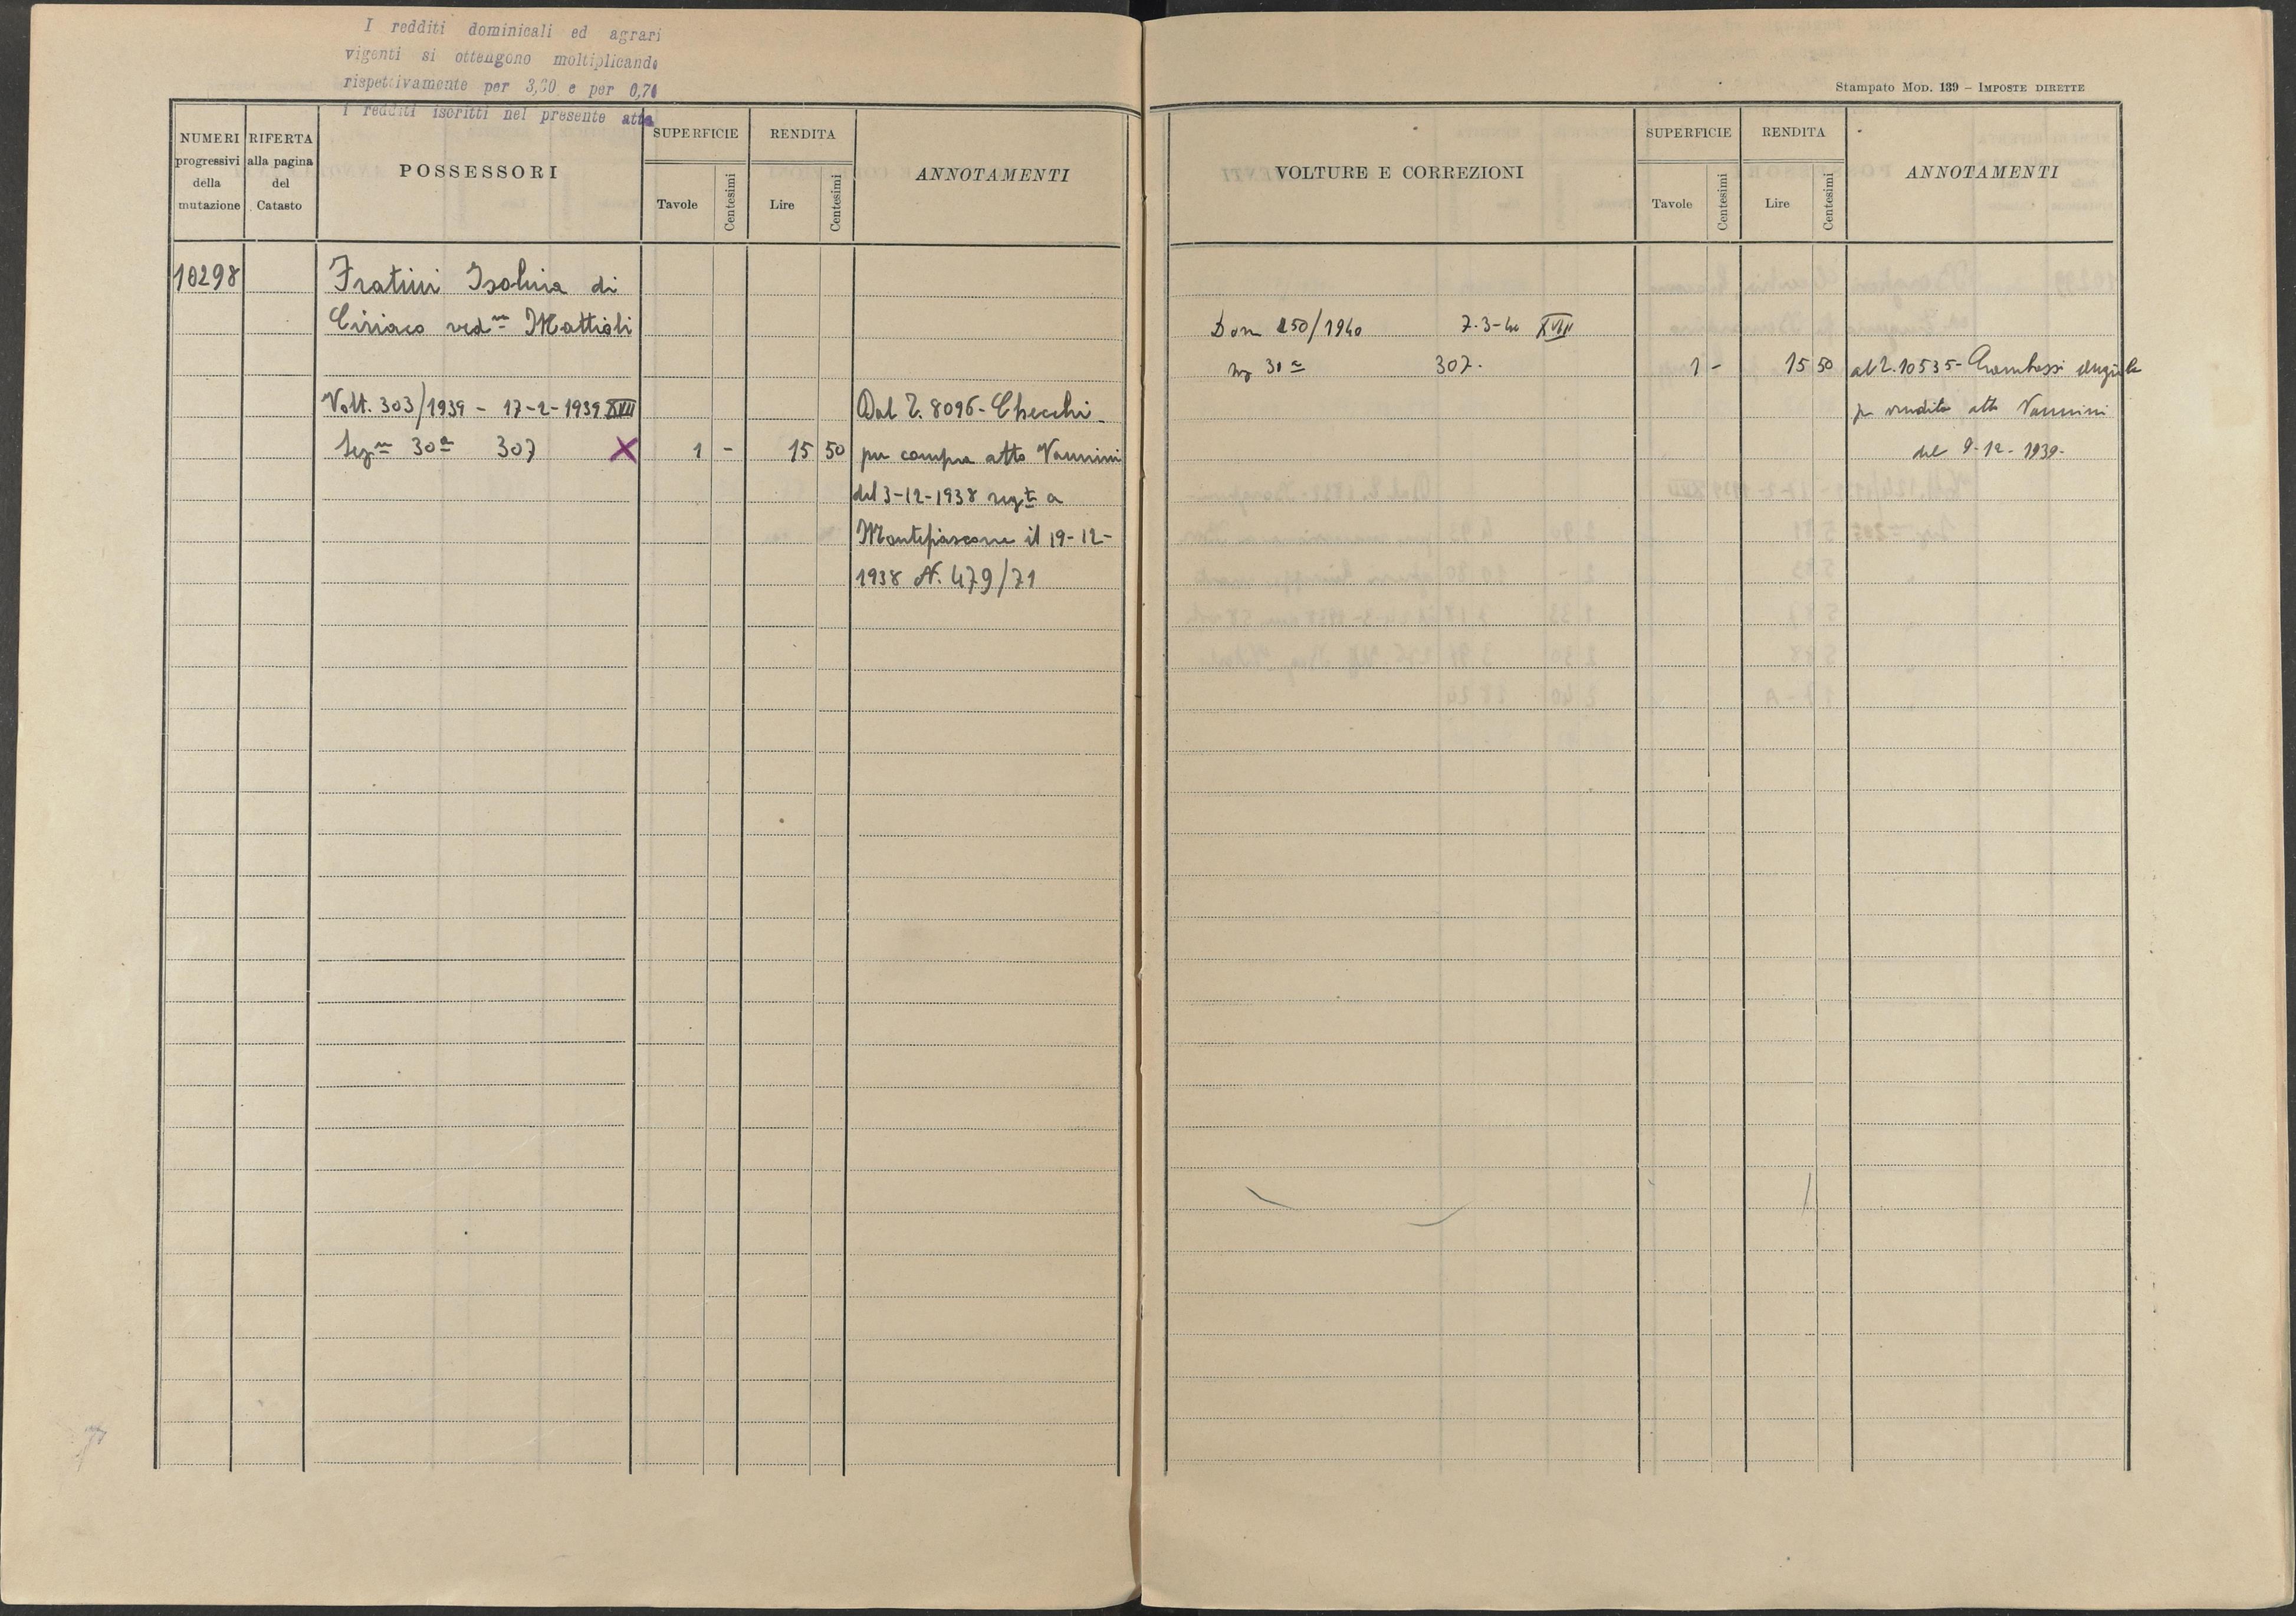 I redditi dominicali ed agrari
vigenti si ottengono moltiplicando
rispettivamente per 3,60 e per 0,70
i redditi iscritti nel presente atto
Stampato Mod. 139 – Imposte dirette
NUMERI progressivi della mutazione
RIFERTA alla pagina del Catasto
POSSESSORI
SUPERFICIE
Tavole Centesimi
RENDITA
Lire Centesimi
ANNOTAMENTI
VOLTURE E CORREZIONI
SUPERFICIE
Tavole Centesimi
RENDITA
Lire Centesimi
ANNOTAMENTI
10298 Fratini Isolina di
Ciriaco ved.ª Mattioli
Volt. 303/1939 - 17-2-1939 XVII
Sez.ne 30ª 307 X 1 - 15 50
Dal T. 8096 - Checchi
per compra atto Vannini
del 3-12-1938 reg.to a
Montefiascone il 19-12-
1938 N. 479/71
Dom 250/1940 7-3-40 XVIII
sez 30ª 307. 1 - 15 50
al T. 10535 -
per vendita atto Vannini
del 9-12-1939.